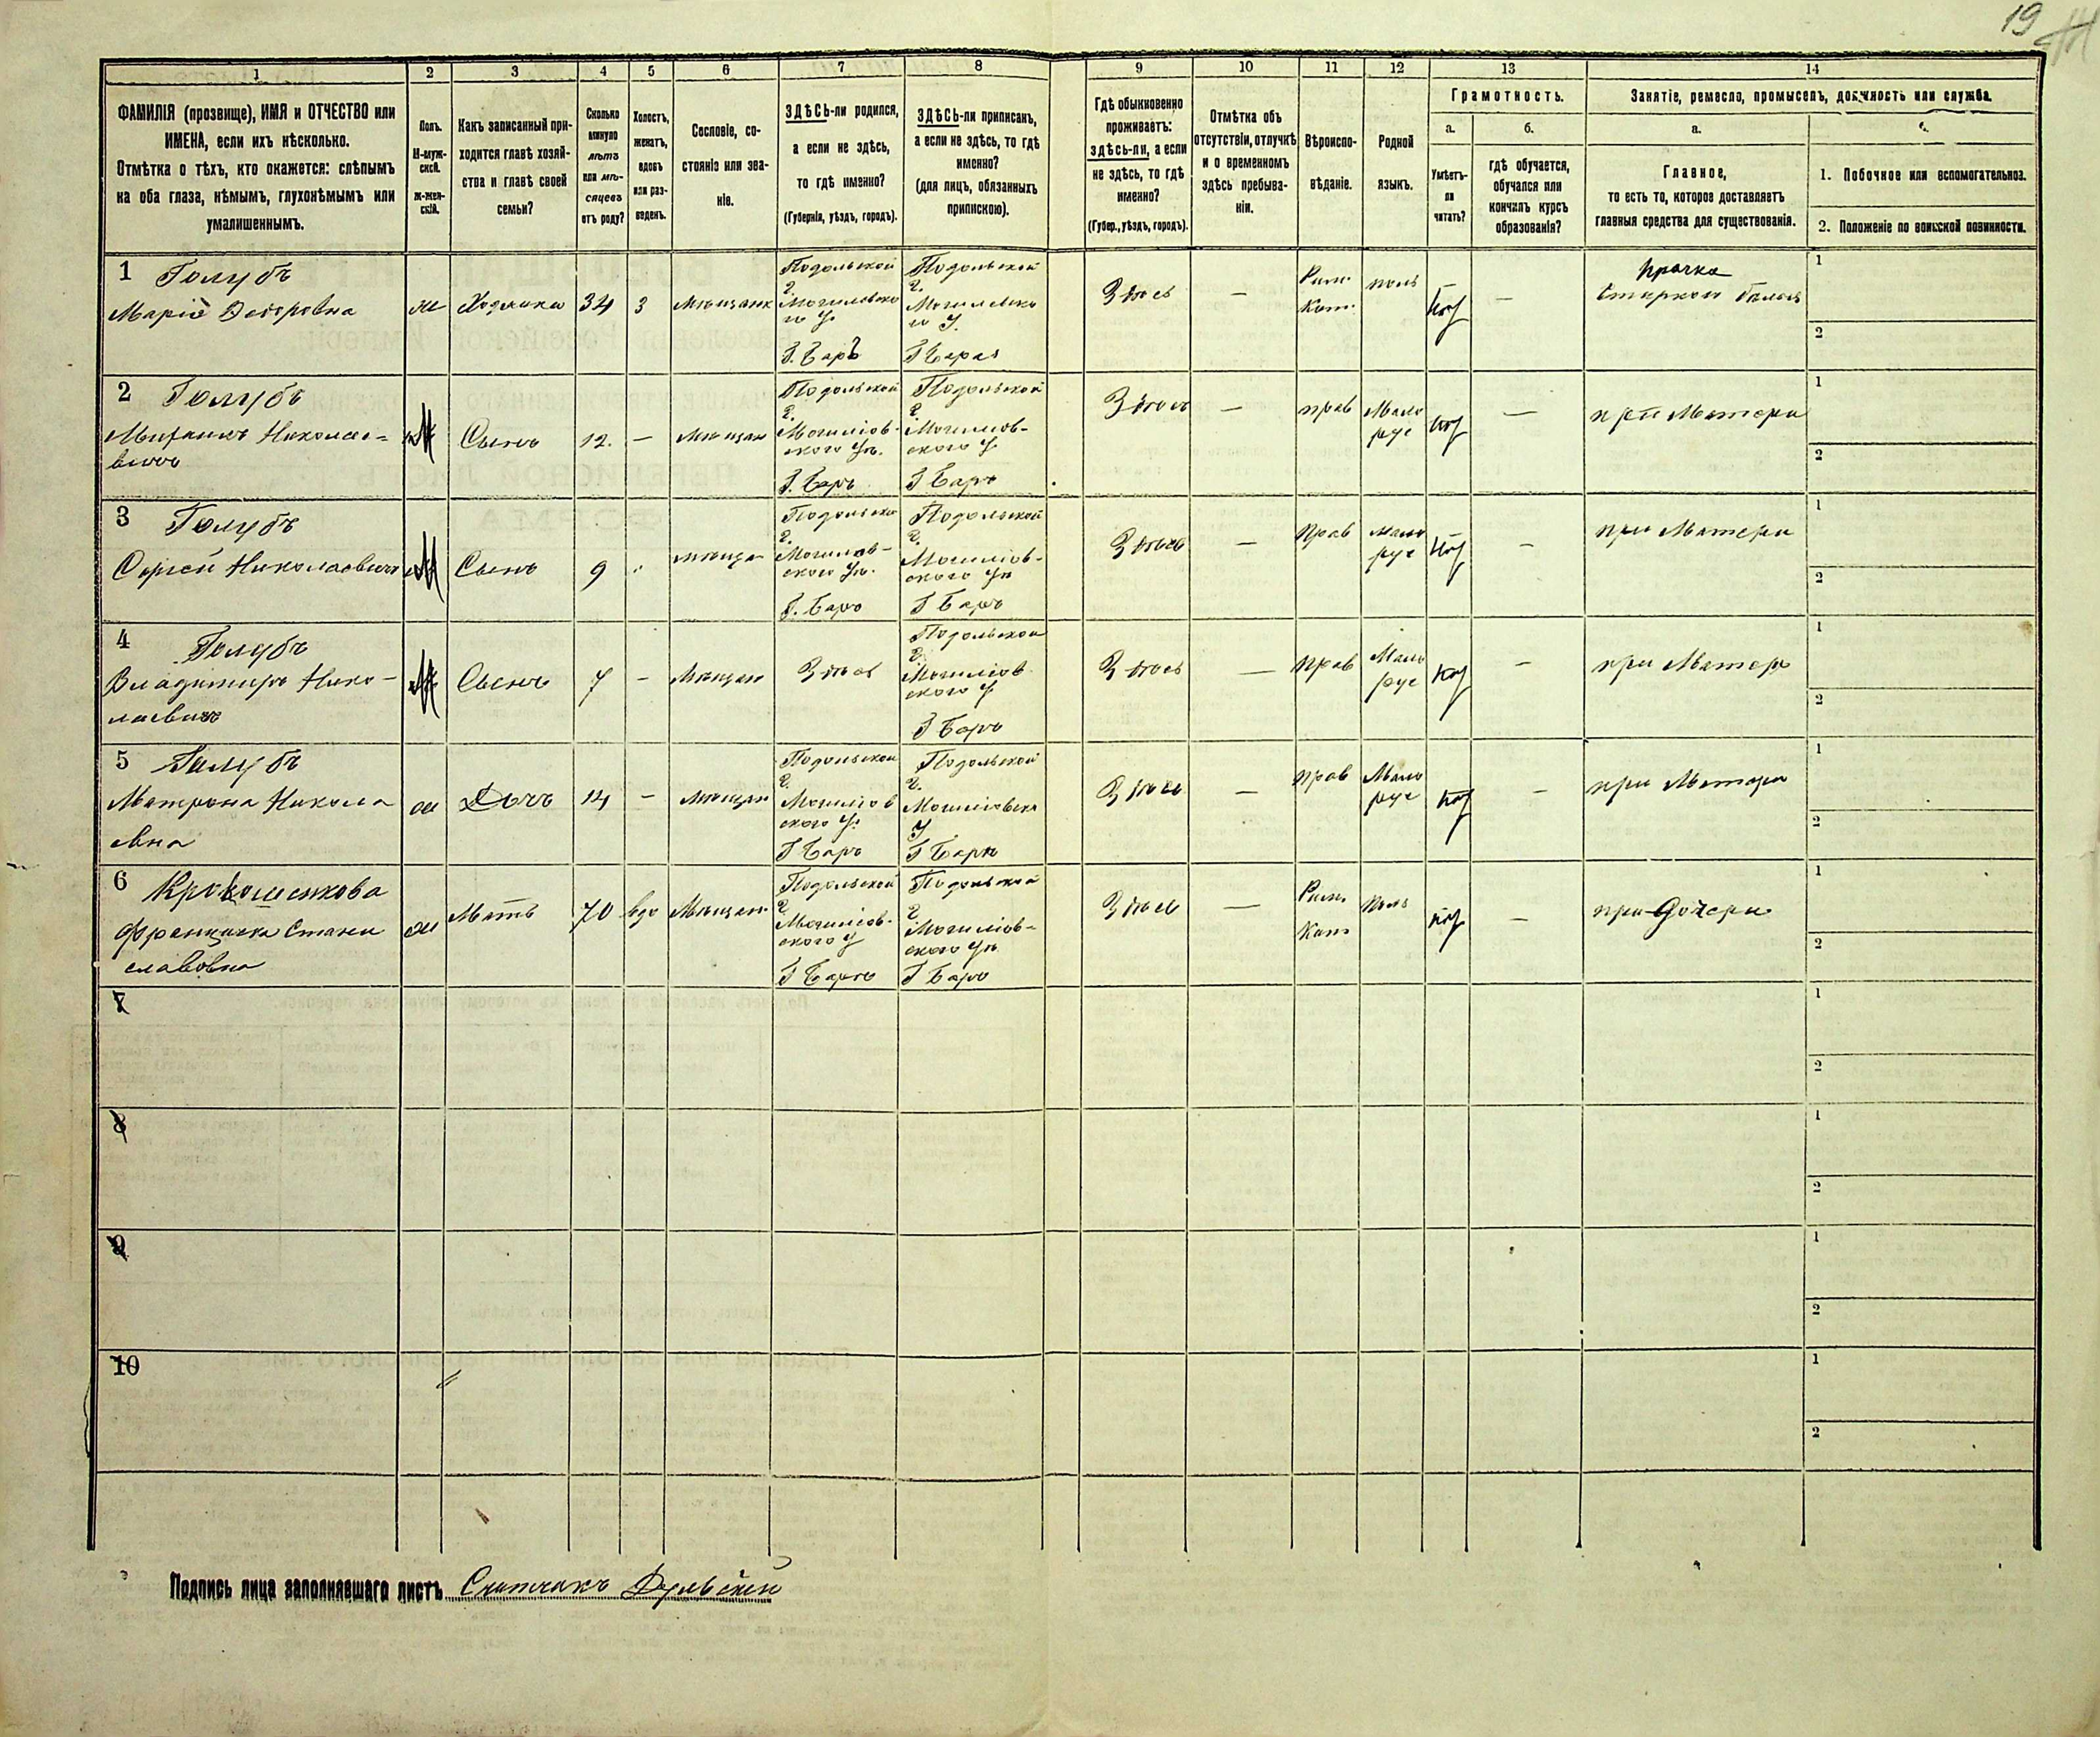 19
1 2 3 4 5 6 7 8 9 10 11 12 13 14
ФАМИЛІЯ (прозвище), ИМЯ и ОТЧЕСТВО или
ИМЕНА, если ихъ нѣсколько.
Отмѣтка о тѣхъ, кто окажется: слѣпымъ
на оба глаза, нѣмымъ, глухонѣмымъ или
умалишеннымъ.
Полъ.
М-муж-
ской.
Ж-жен-
скій.
Какъ записанный при-
ходится главѣ хозяй-
ства и главѣ своей
семьи?
Сколько
минуло
лѣтъ
или мѣ-
сяцевъ
отъ роду?
Холостъ,
женатъ,
вдовъ
или раз-
веденъ.
Сословіе, со-
стояніе или зва-
ніе.
ЗДѢСЬ-ли родился,
а если не здѣсь,
то гдѣ именно?
(Губернія, уѣздъ, городъ).
ЗДѢСЬ-ли приписанъ,
а если не здѣсь, то гдѣ
именно?
(для лицъ, обязанныхъ
припискою).
Гдѣ обыкновенно
проживаетъ:
здѣсь-ли, а если
не здѣсь, то гдѣ
именно?
(Губер., уѣздъ, городъ).
Отмѣтка объ
отсутствіи, отлучкѣ
и о временномъ
здѣсь пребыва-
ніи.
Вѣроиспо-
вѣданіе.
Родной
языкъ.
Грамотность.
а.
Умѣетъ-
ли
читать?
б.
Гдѣ обучается,
обучался или
кончилъ курсъ
образованія?
Занятіе, ремесло, промыселъ, должность или служба.
а.
Главное,
то есть то, которое доставляетъ
главныя средства для существованія.
1. Побочное или вспомогательное.
2. Положеніе по воинской повинности.
1 Голубъ
Марія Федоровна
ж
Хозяйка
34
З
Мѣщанк
Подольской
г.
Могилевско
го У.
Г. Баръ
Подольской
г.
Могилевско
го У.
Г Бара
Здѣсь
—
Рим.
Кат.
поль
нѣт
—
прачка
Стиркой белья
1
2
2 Голубъ
Михаилъ Николае-
вичъ
М
Сынъ
12.
—
Мѣщан
Подольской
г.
Могилев-
ского Уѣ.
Г. Баръ
Подольской
г.
Могилев-
ского У
Г Баръ
Здѣсь
—
прав
Мало
рус
нѣт
—
при Матери
1
2
3 Голубъ
Сергей Николаевичъ
М
Сынъ
9
мѣщан
Подольской
г.
Могилев-
ского Уѣ.
Г. Баръ
Подольской
г.
Могилев-
ского Уѣ
Г Баръ
Здѣсь
—
Прав
мало
рус
нѣт
—
при Матери
1
2
4 Голубъ
Владимиръ Нико-
лаевичъ
М
Сынъ
7
—
Мѣщан
Здѣсь
Подольской
г.
Могилев
ского У
Г Баръ
Здѣсь
—
прав
Мало
рус
нѣт
—
при Матери
1
2
5 Голубъ
Матрона Никола
евна
ж
Дочь
14
—
Мѣщан
Подольской
г.
Могилев
ского У.
Г Баръ
Подольской
г.
Могилевска
У
Г Баръ
Здѣсь
—
прав
Мало
рус
нѣт
—
при Матери
1
2
6
Францишка Стани
славовна
ж
Мать
70
вдо
Мѣщан
Подольской
г.
Могилев-
ского У
Г Баръ
Подольской
г.
Могилев-
ского Уѣ
Г Баръ
Здѣсь
—
Рим.
Кат
поль
нѣт
—
при Дочери
1
2
7
1
2
8
1
2
9
1
2
10
1
2
Подпись лица заполнявшаго листъ Счетчикъ